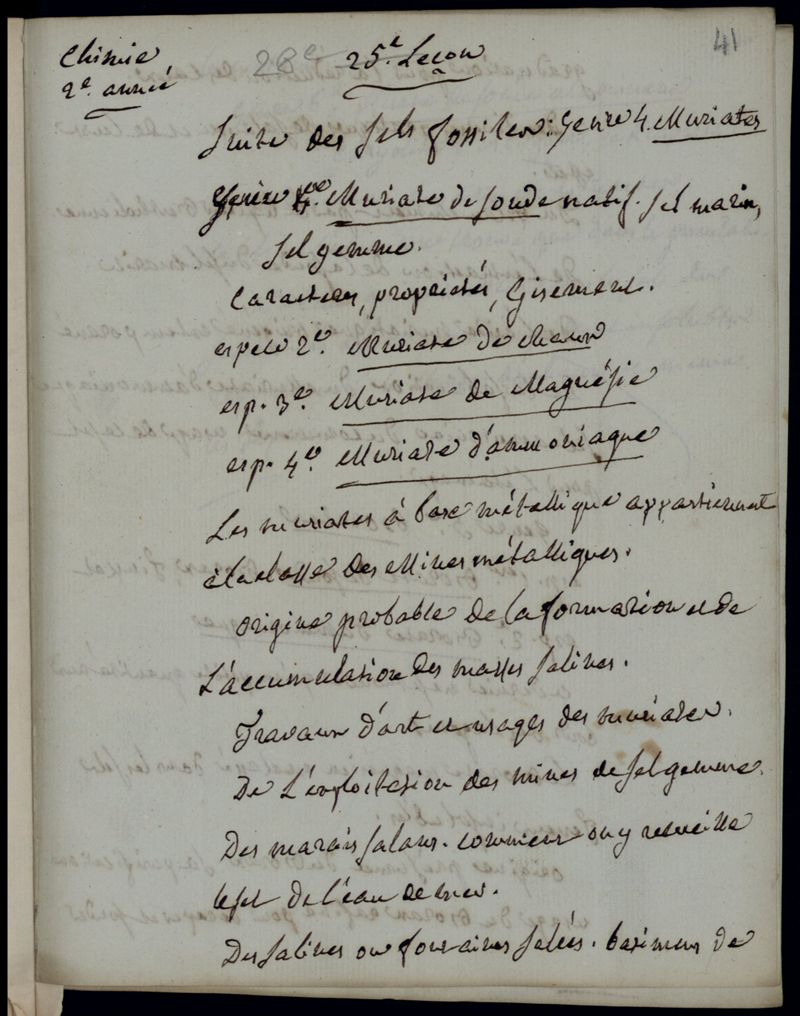 Chimie
2e. année
28e 25e. Leçon
41
Suite des sels fossiles: Genre 4. Muriates
Muriate de soude natif. Sel marin,
Sel gemme.
Caracteres, propriétés, Gisement.
espece 2e. Muriate de chaux
esp. 3e. Muriate de Magnésie
esp. 4e. Muriate d'ammoniaque
Les muriates à base métallique appartiennent
à la classe des Mines métalliques.
origine probable de la formation et de
L'accumulation des masses salines.
Travaux d'art et usages des muriates.
De L'exploitation des mines de sel gemme.
Des marais salans. comment on y recueille
le sel de l'eau de mer.
Des salines ou fontaines salées. batimens de